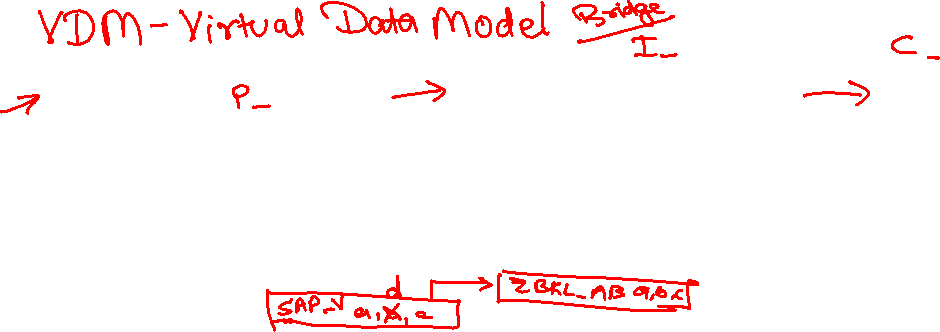 VDM - Virtual Data Model Bridge
I_
C_
P_
d
SAP_V a, b, c
ZBKL_AB a,b,c